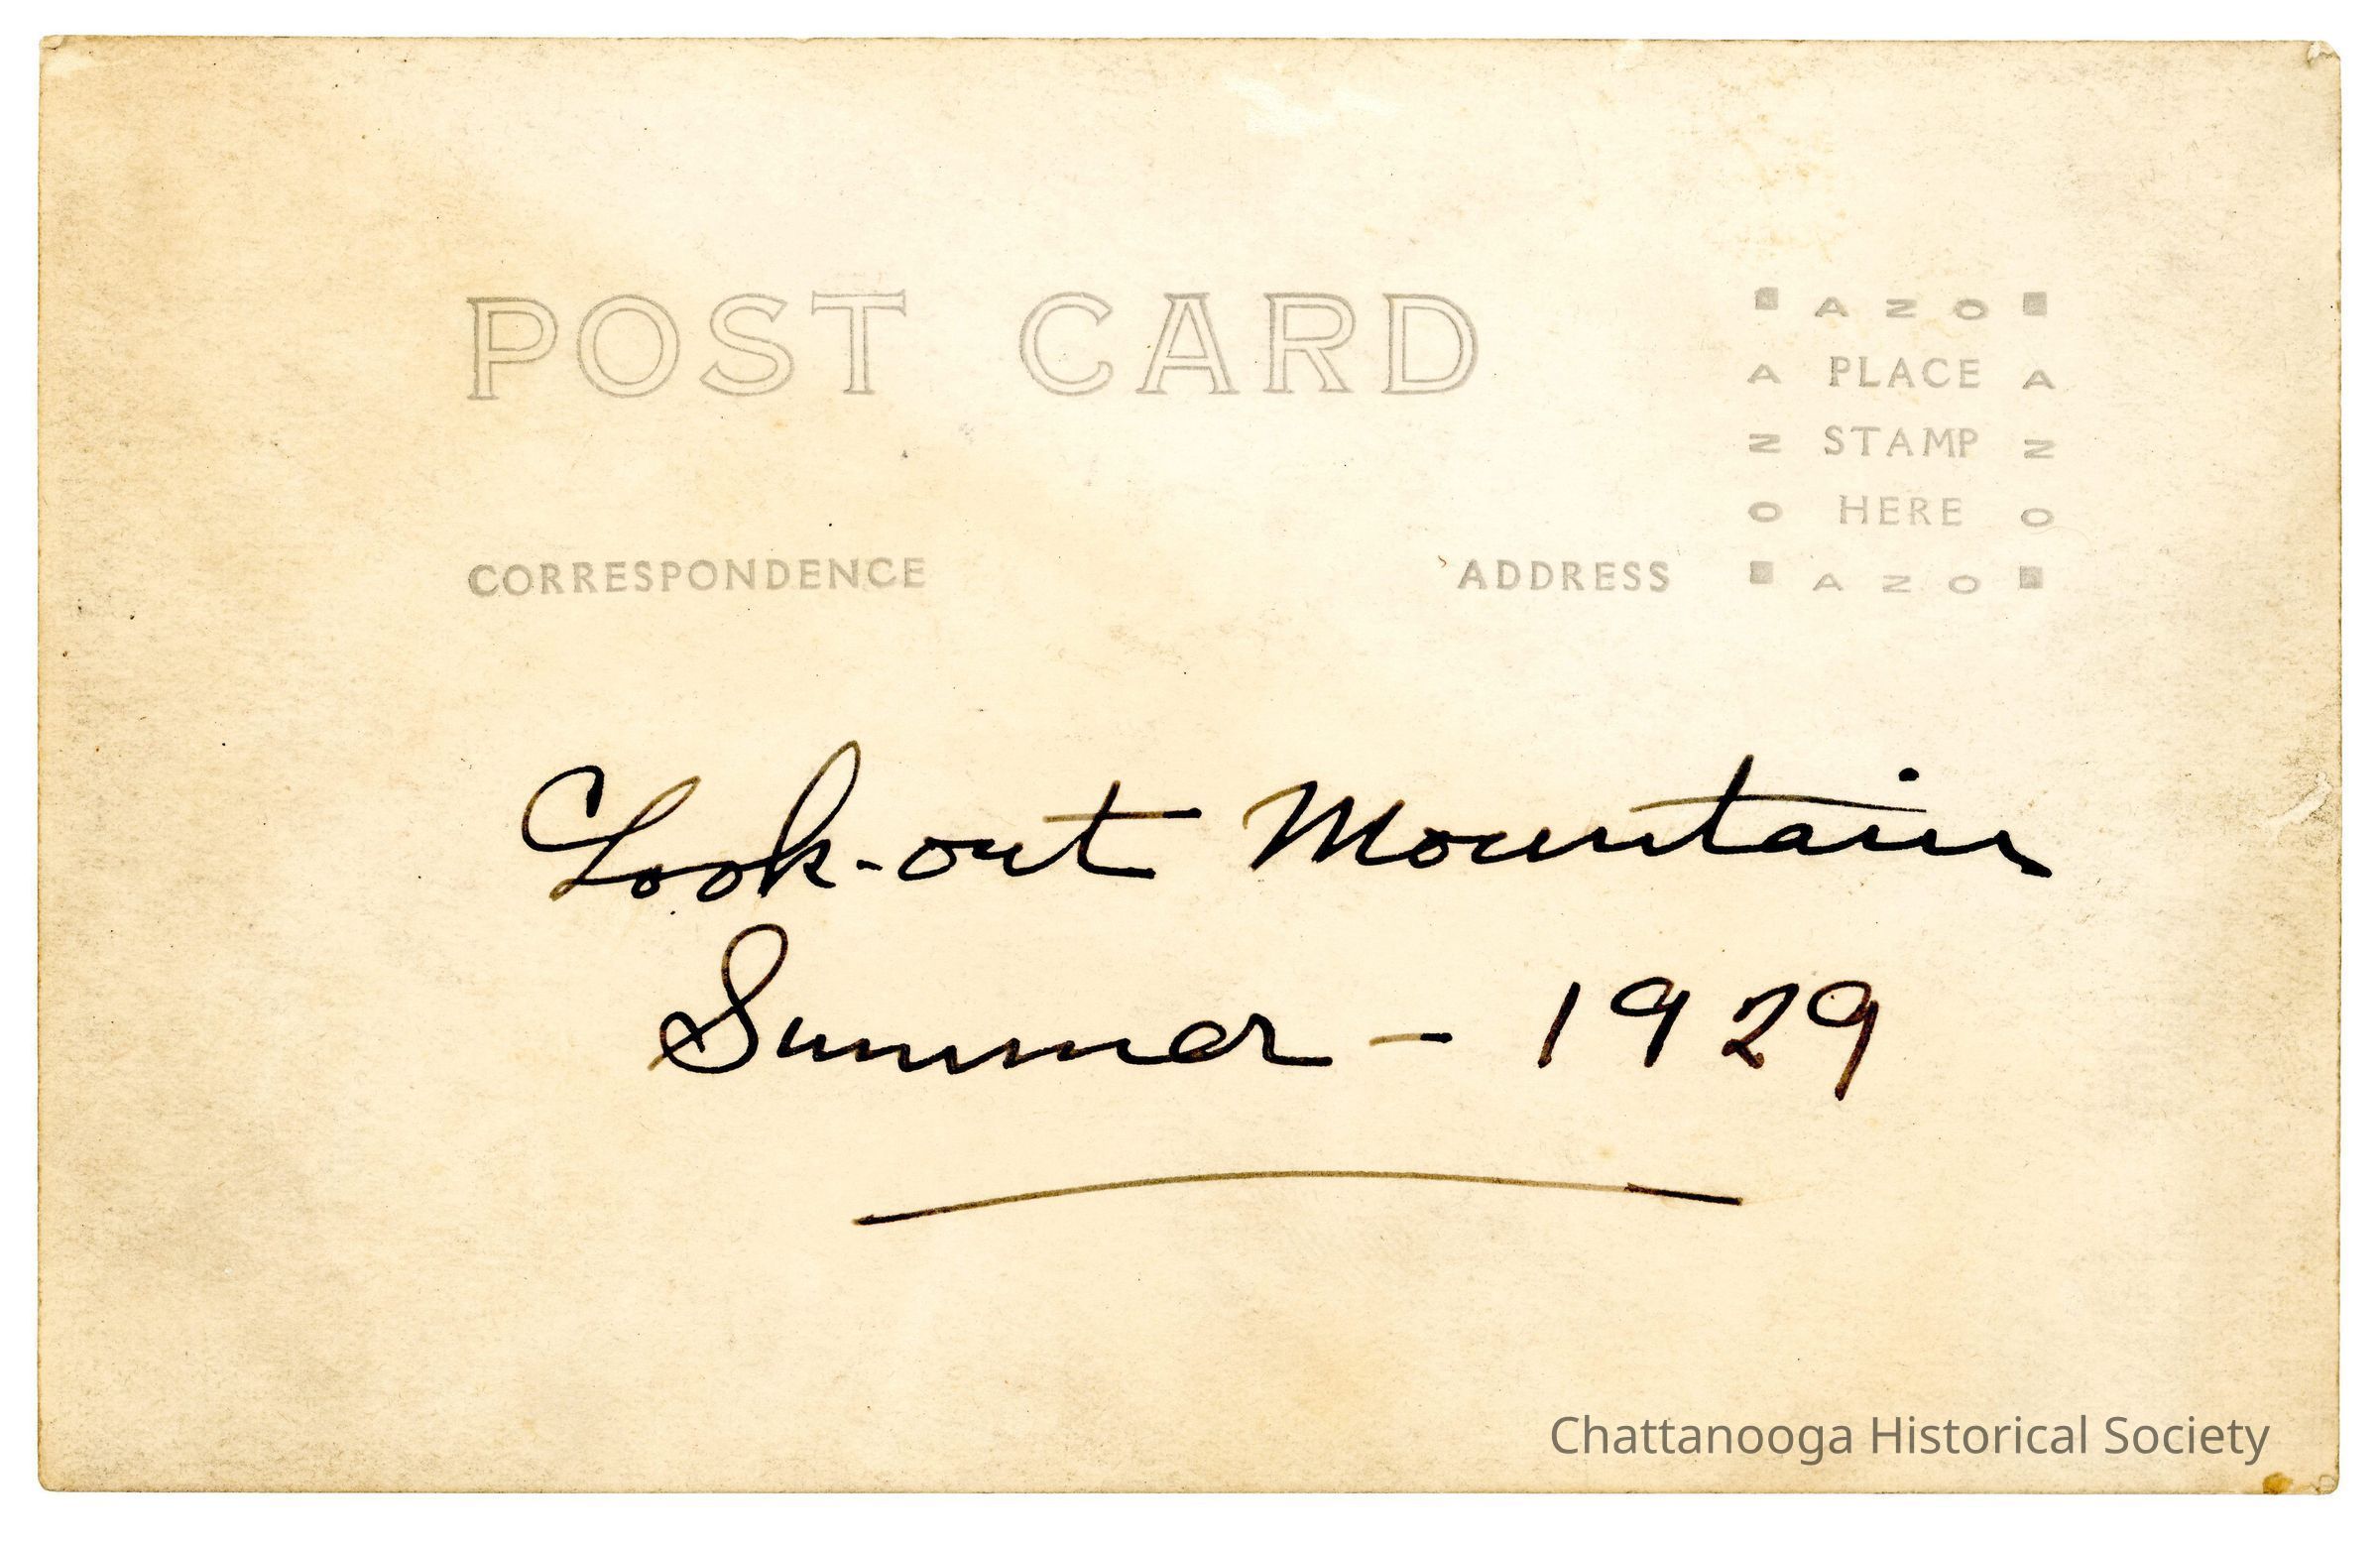 POST CARD
AZO
A PLACE A
N STAMP N
O HERE O
CORRESPONDENCE
ADDRESS
AZO
Look-out Mountain
Summer - 1929
Chattanooga Historical Society